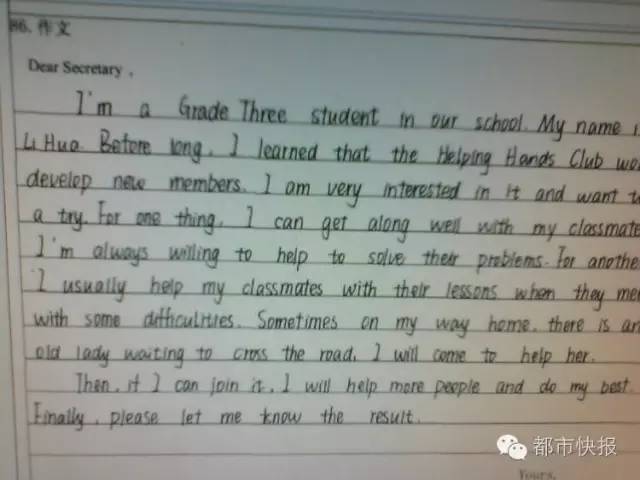 86. 作文
Dear Secretary,
I'm a Grade Three student in our school. My name
Li Hua. Before long, I learned that the Helping Hands Club
develop new members. I am very interested in it and want
a try. For one thing, I can get along well with my classmate
I'm always willing to help to solve their problems. For another
I usually help my classmates with their lessons when they
with some difficulities. Sometimes on my way home, there is an
old lady waiting to cross the road, I will come to help her.
Then, if I can join it, I will help more people and do my best.
Finally, please let me know the result.
Yours,
都市快报